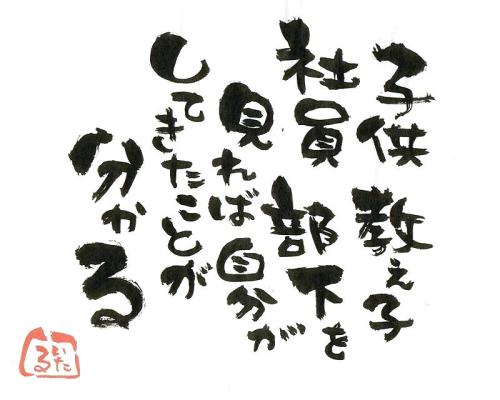 子供 教え子
社員 部下を
見れば自分が
してきたことが
分かる